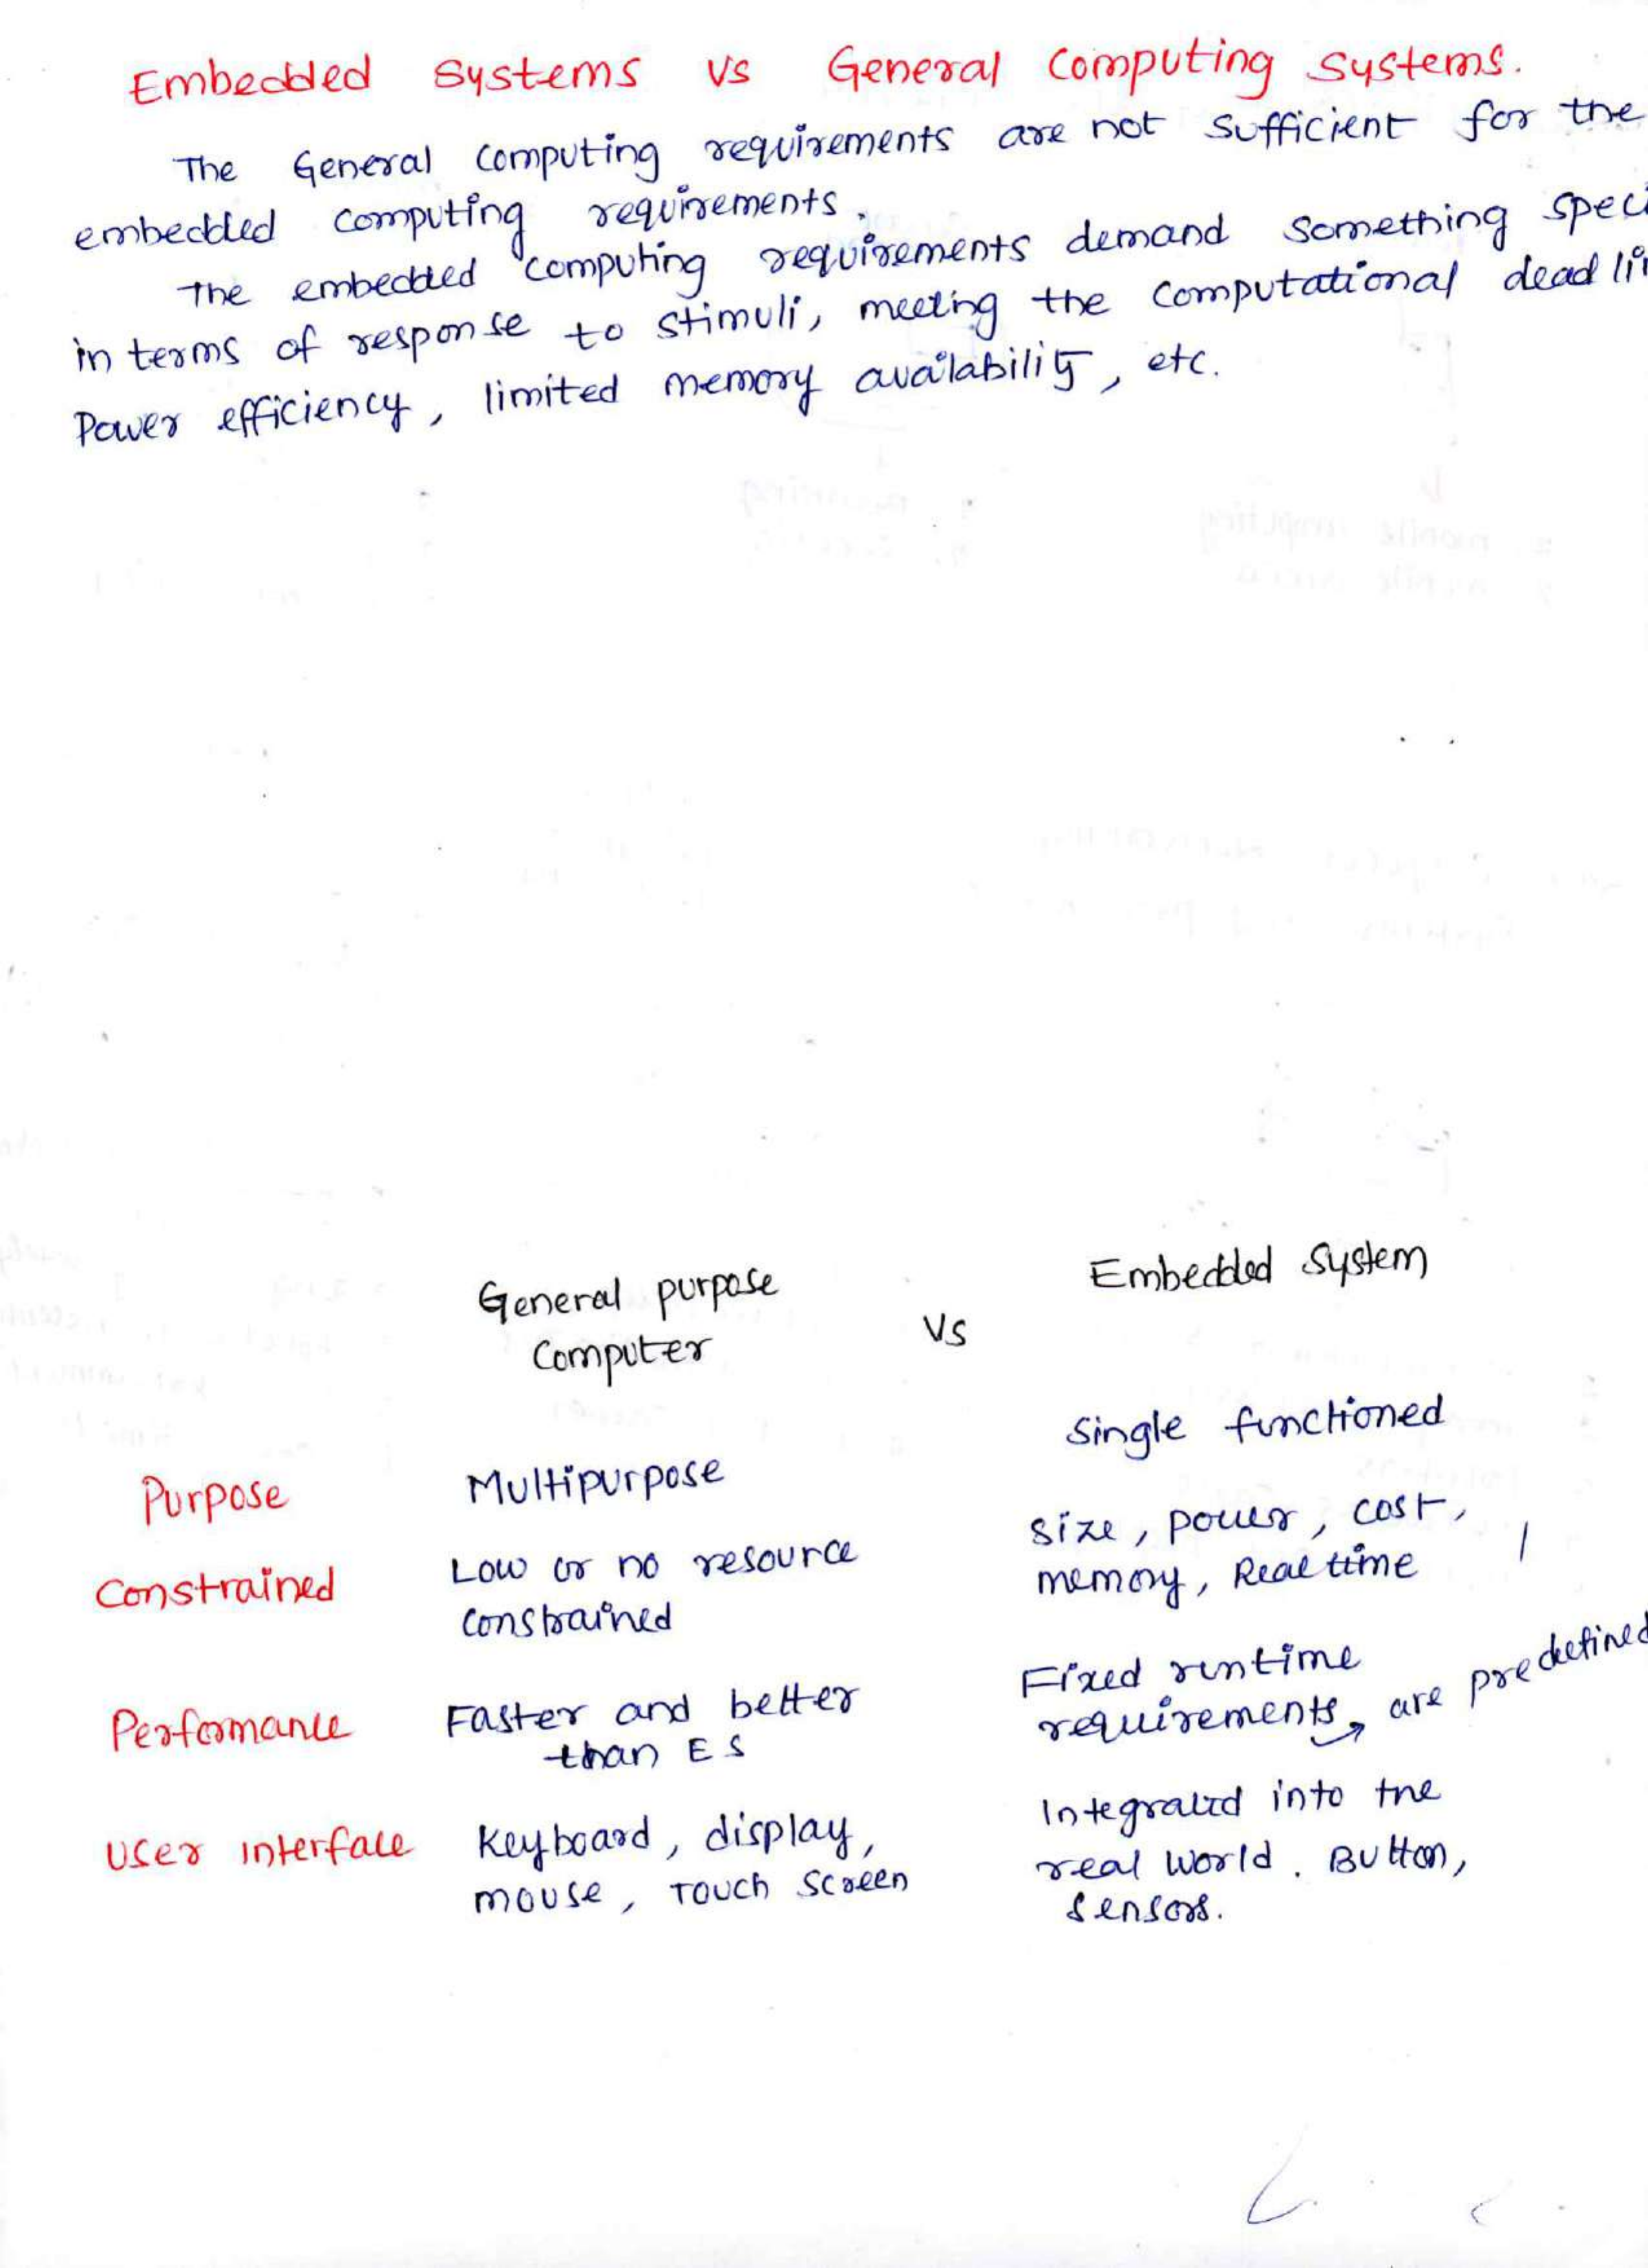 Embedded Systems vs General Computing Systems.
The General computing requirements are not sufficient for the
embedded computing requirements.
The embedded computing requirements demand something speci
in terms of response to stimuli, meeting the computational dead li
Power efficiency, limited memory availability, etc.
General purpose Computer vs Embedded System
Purpose Multipurpose Single functioned
Constrained Low or no resource constrained size, power, cost, memory, Real time
Performance Faster and better than ES Fixed runtime requirements, are predefined
User interface Keyboard, display, mouse, Touch Screen Integrated into the real world. Button, Sensors.